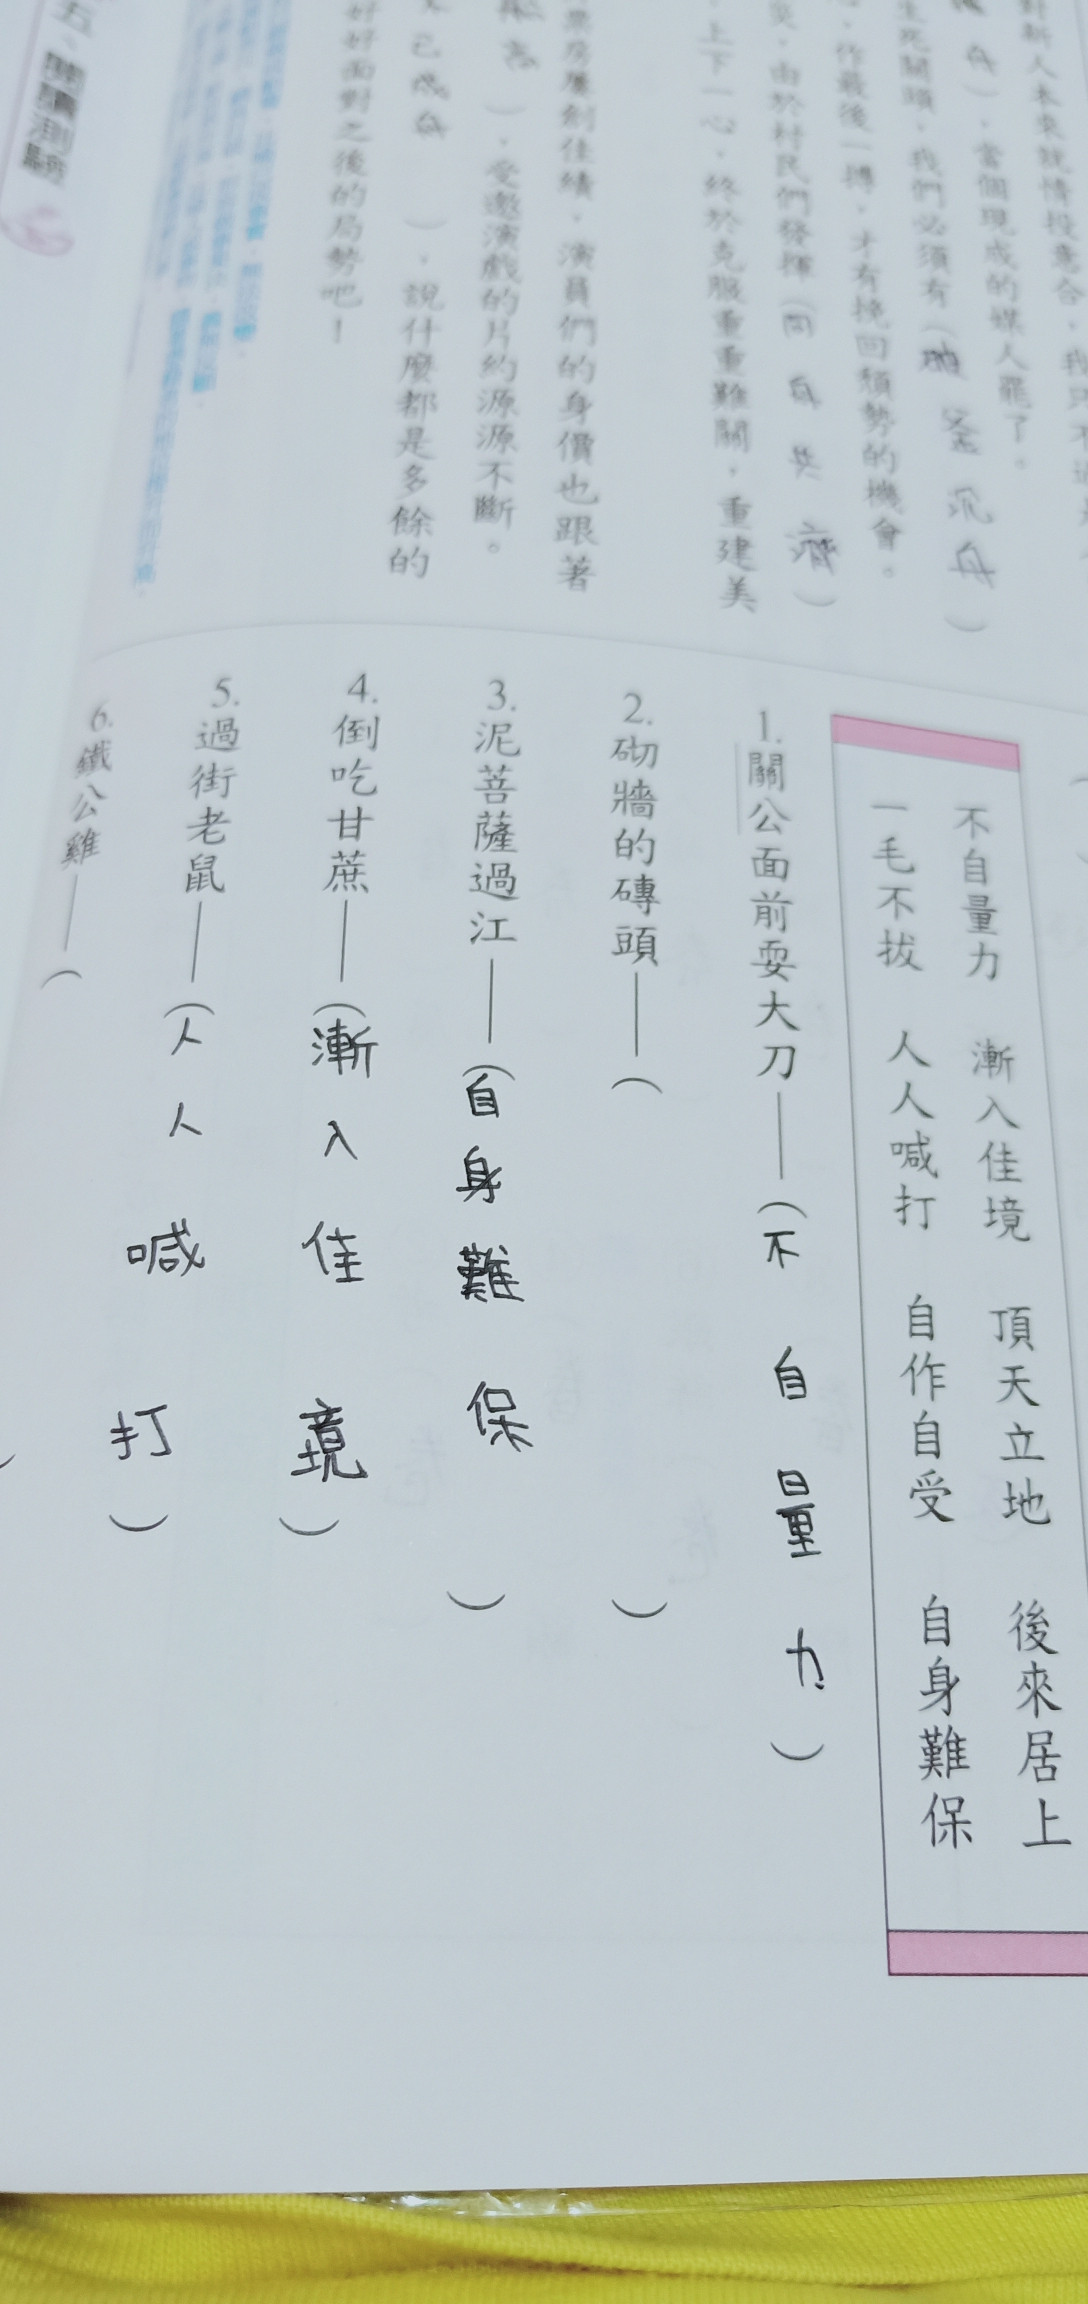 對新人本來就情投意合，我只不過是
舟），當個現成的媒人罷了。
生死關頭，我們必須有（破釜沉舟）
，作最後一搏，才有挽回頹勢的機會。
災，由於村民們發揮（同舟共濟）
，上下一心，終於克服重重難關，重建美
票房屢創佳績，演員們的身價也跟著
高），受邀演戲的片約源源不斷。
已成舟），說什麼都是多餘的
好好面對之後的局勢吧！
五、閱讀測驗
不自量力 漸入佳境 頂天立地 後來居上
一毛不拔 人人喊打 自作自受 自身難保
1.關公面前耍大刀——（不自量力）
2.砌牆的磚頭——（ ）
3.泥菩薩過江——（自身難保）
4.倒吃甘蔗——（漸入佳境）
5.過街老鼠——（人人喊打）
6.鐵公雞——（